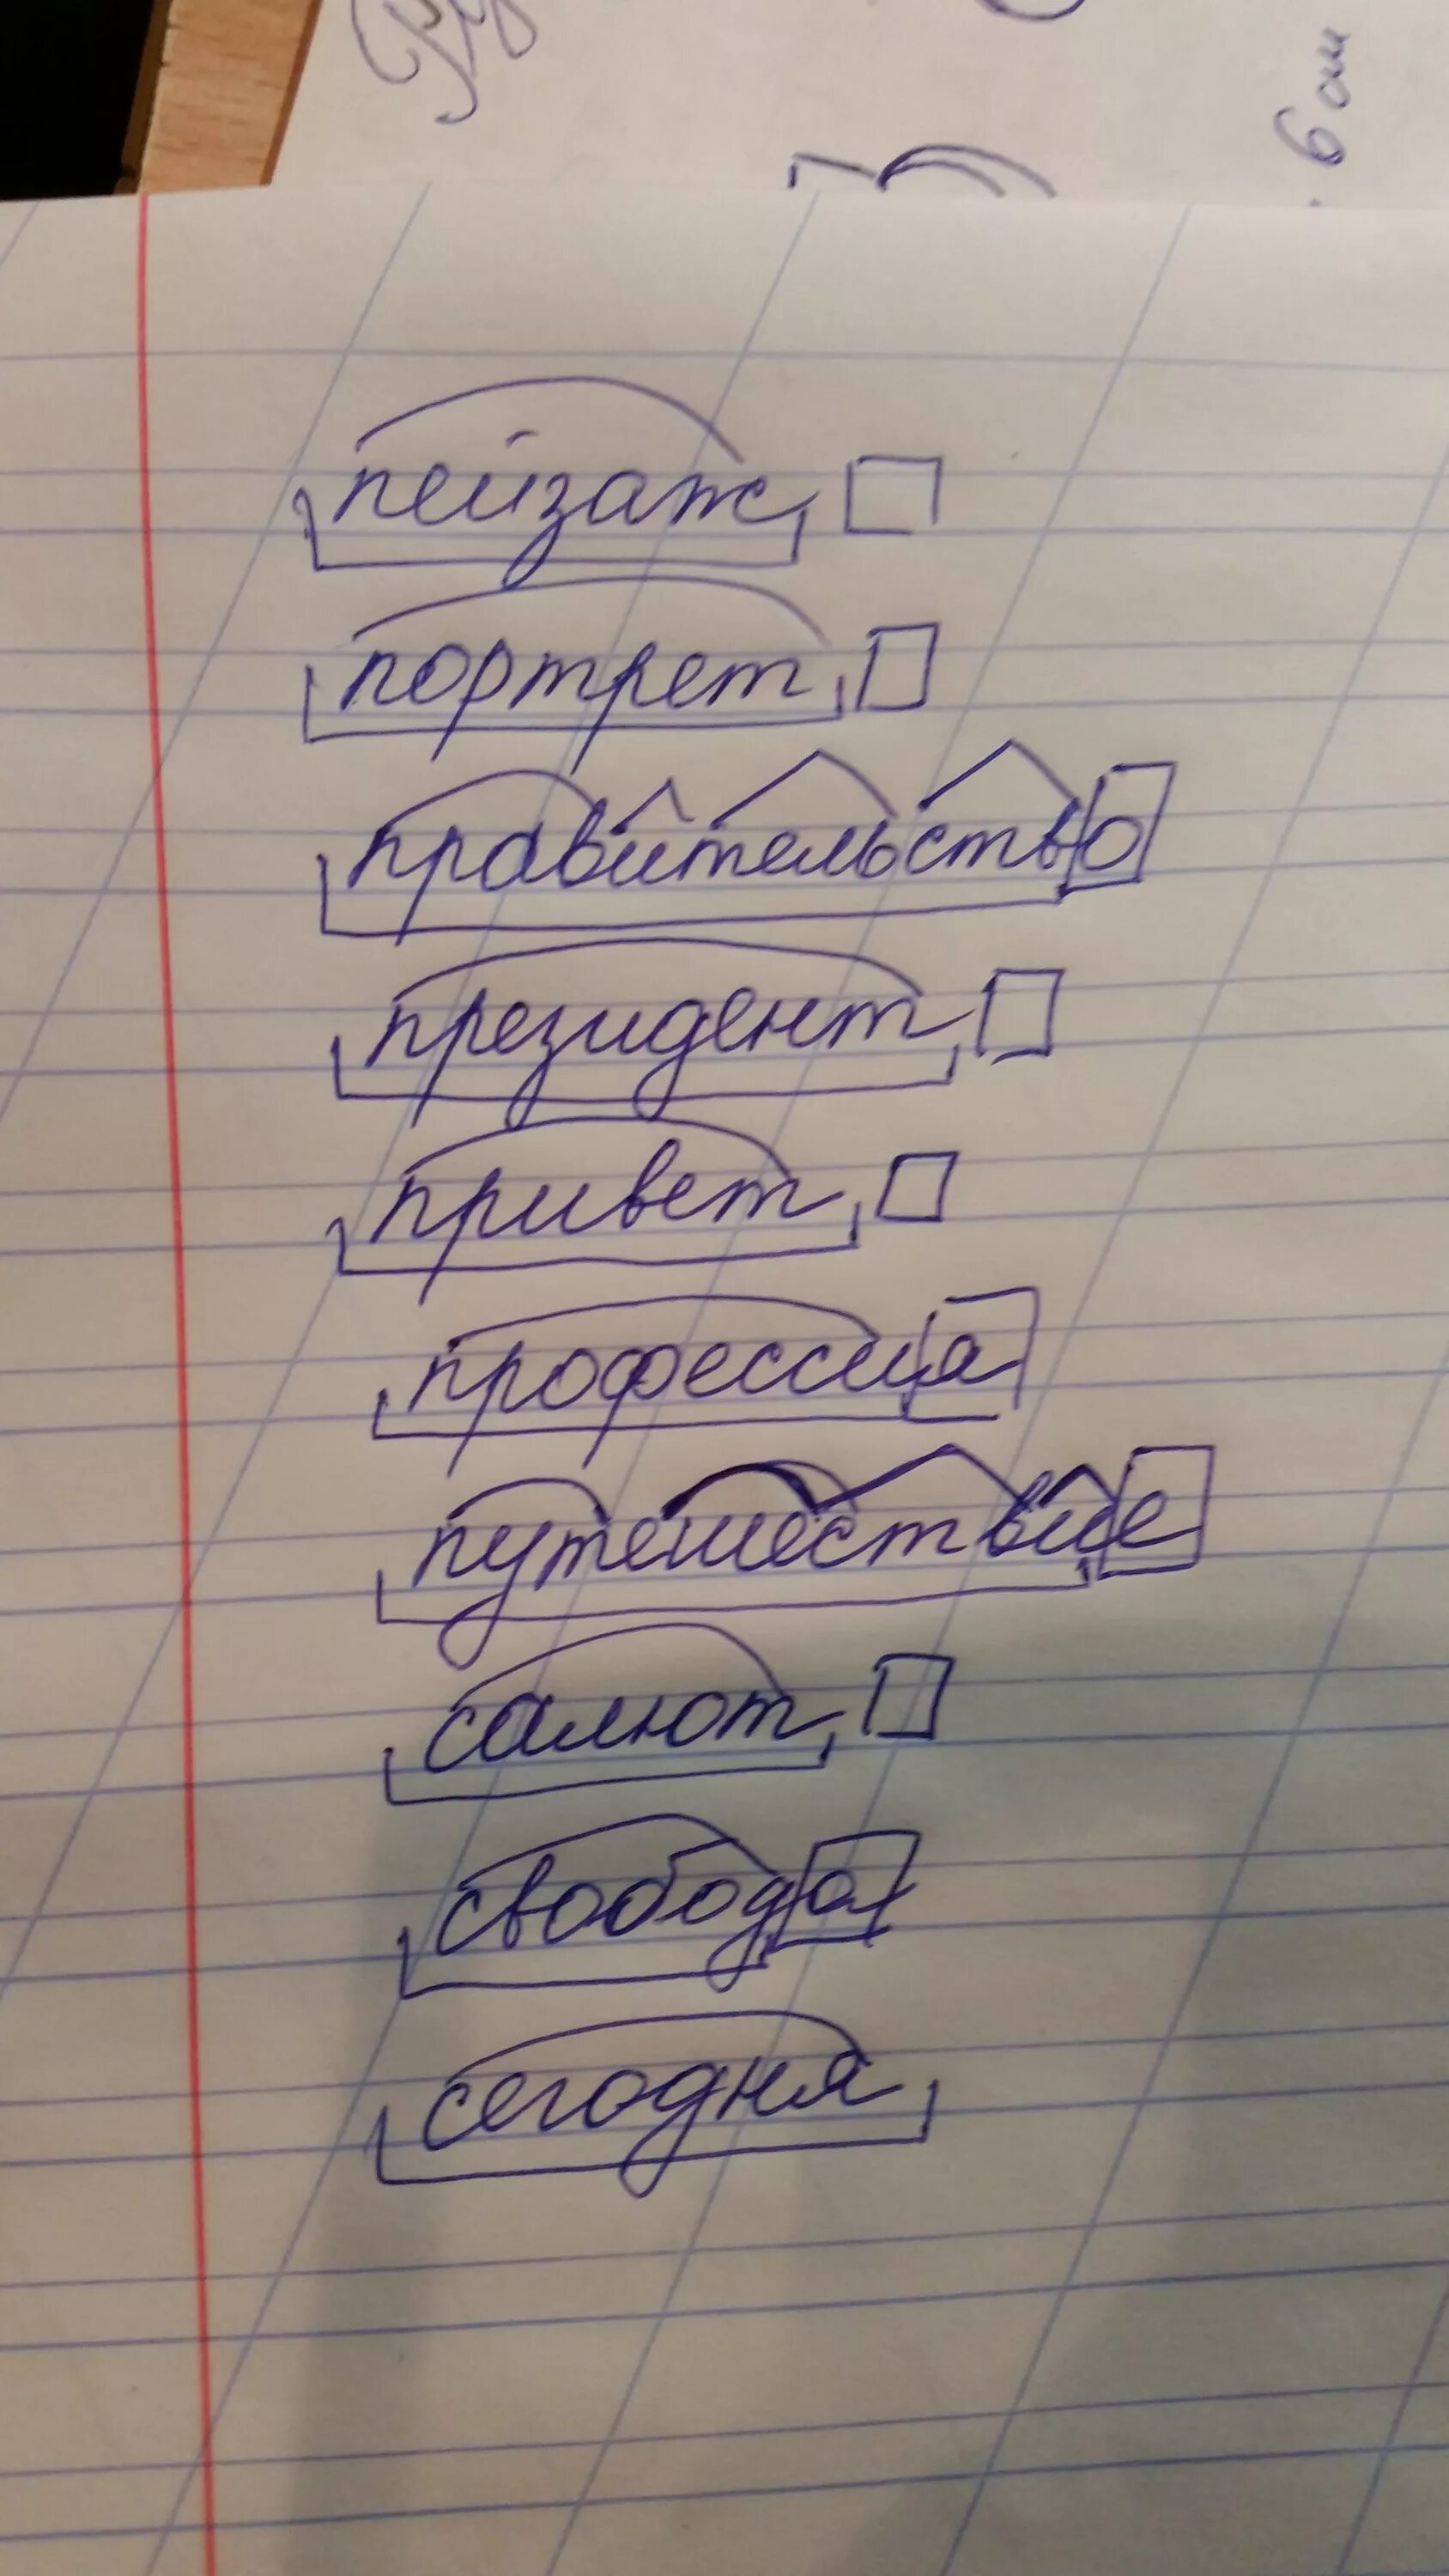 пейзаж
портрет
правительство
президент
привет
профессия
путешествие
салют
свобода
сегодня